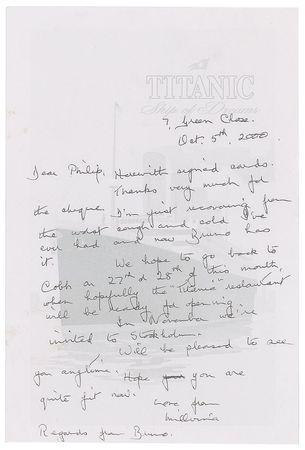 TITANIC
Ship of Dreams
7, Green Close.
Oct. 5th, 2000
Dear Philip, Herewith signed cards.
Thanks very much for
the cheque. I'm just recovering from
the worst cough and cold I've
ever had and now Bruno has
it. We hope to go back to
Cobh on 27th & 28th of this month,
when hopefully the "Titanic" restaurant
will be ready for opening.
In November we're
invited to Stockholm.
Will be pleased to see
you anytime. Hope you are
quite fit now.
Love from
Millvina
Regards from Bruno.